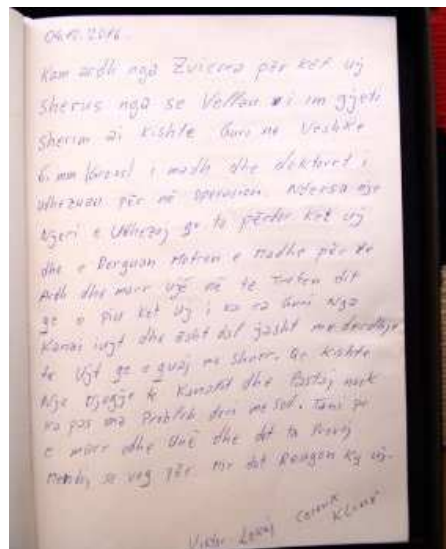 04.10.2016.
Kam ardh nga Zvicrra për ket uj
Sherus nga se Vellau i im gjeti
Sherim ai kishte Guri na Veshke
6. mm i madh dhe doktoret i
udhezuan për në operacion. Ndersa nje
Njeri e Udhezoj qe ta përdor ket uj
dhe e Derguan Motren e Madhe për te
Ardh dhe marr ujë në te Treten dit
qe e piu ket Uj i ka ra Guri Nga
Kanali dhe asht dal jasht me derdhje
te Ujt qe e quaj me sherr. Qe kishte
Nje te Kanalit dhe Pastaj nuk
ka pas ma Problem deri me sot. Tani po
e mürr dhe Unë dhe do ta Provoj
se veq për mir dot Reagon Ky uj.
Viktor Lekaj
Klinë